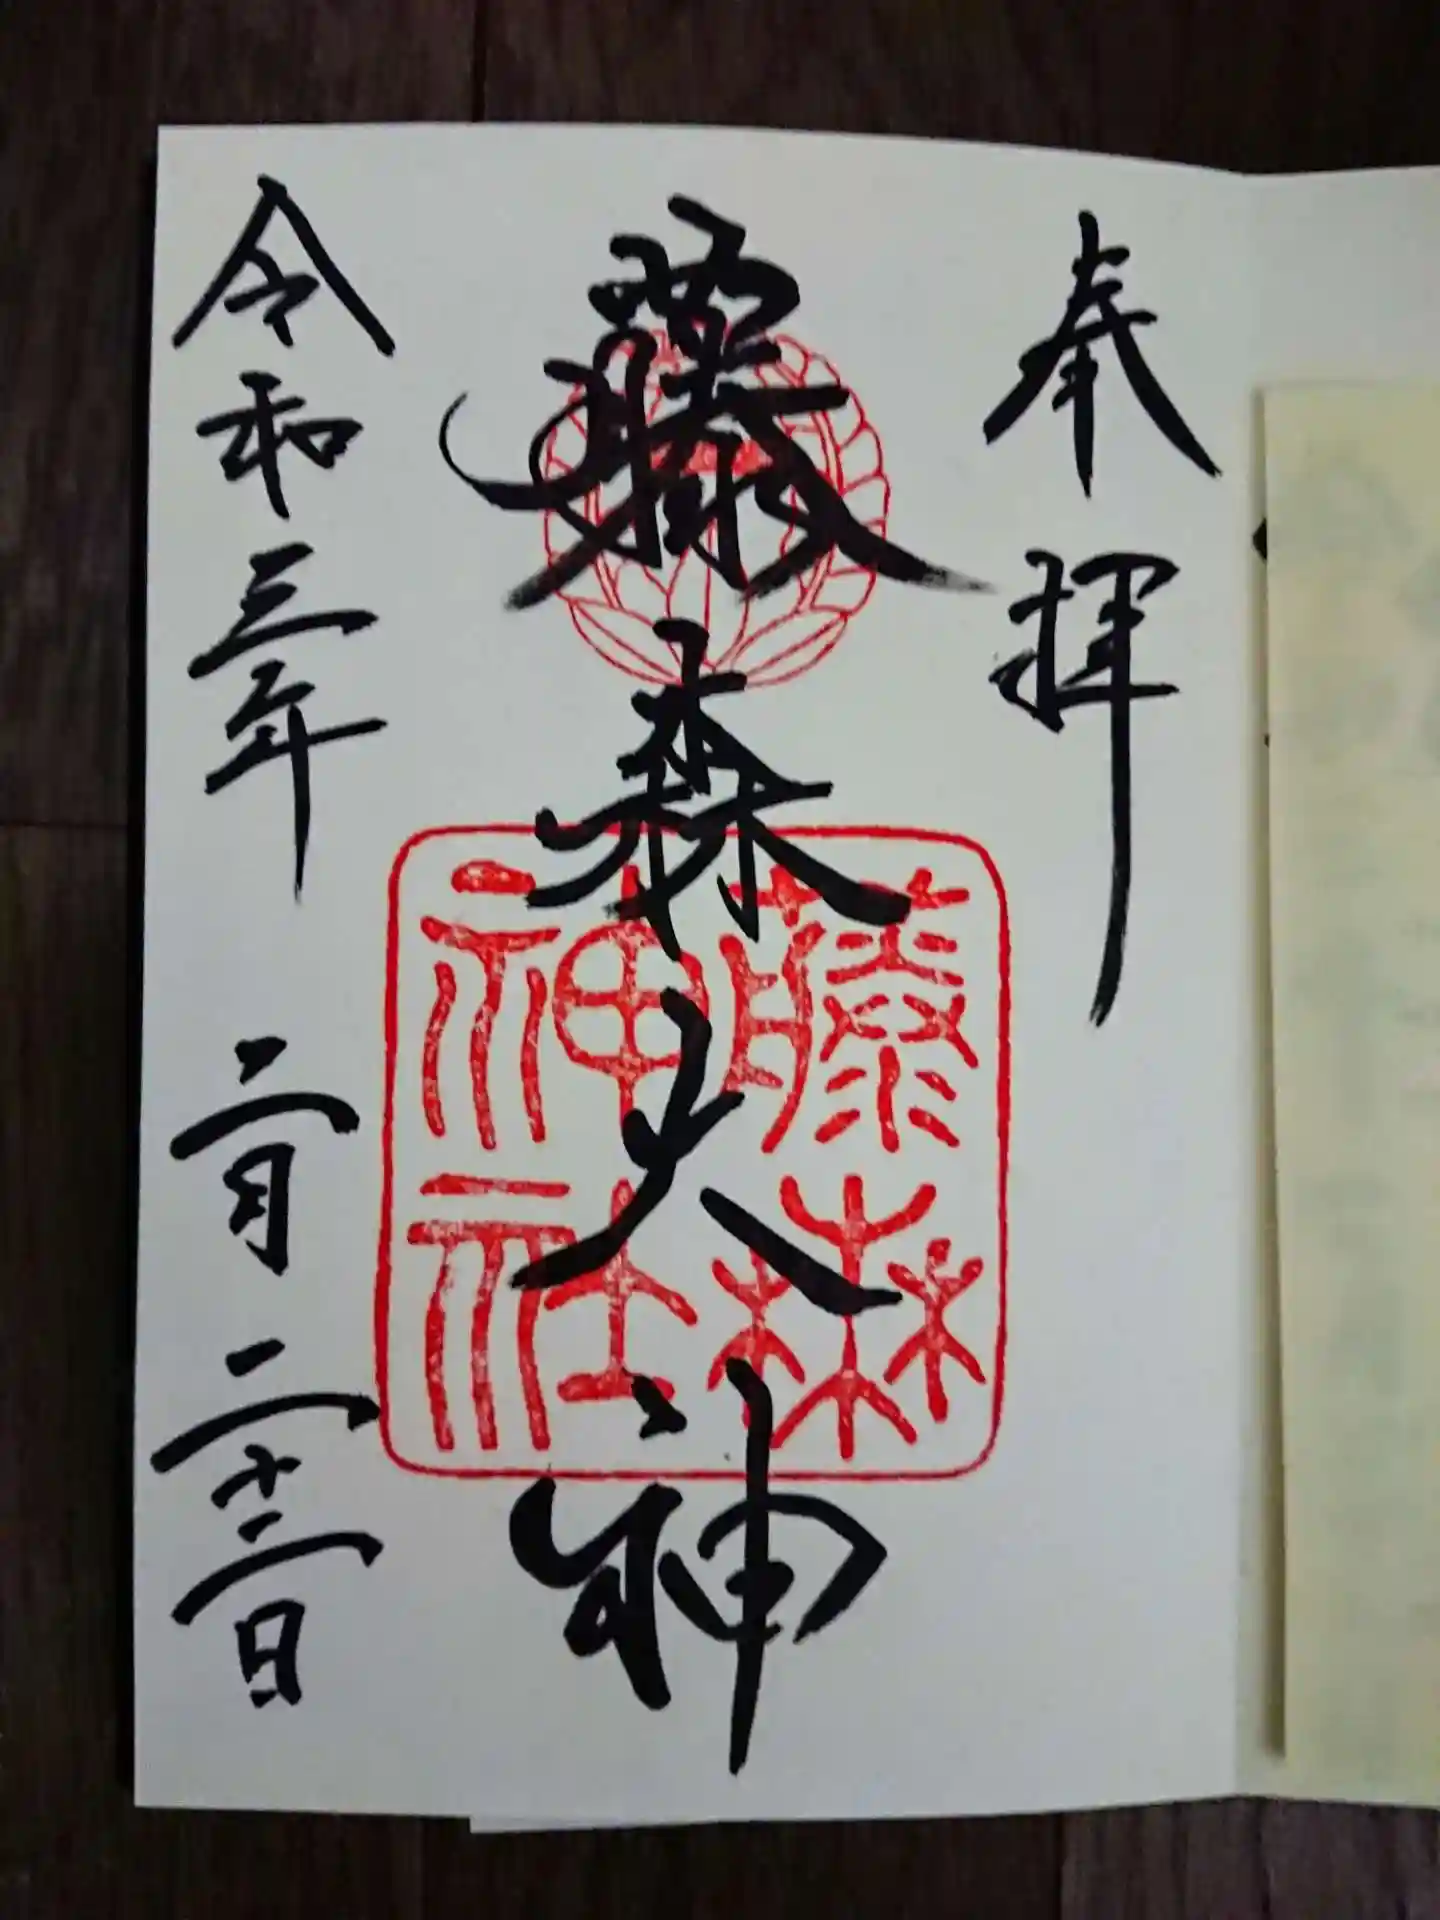 奉拝
藤森大神
令和三年 二月 二十二日
藤森
神社